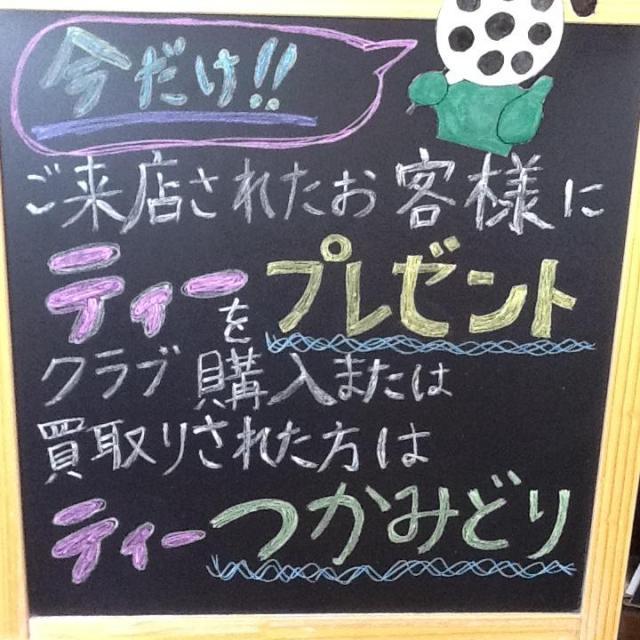 今だけ!!
ご来店されたお客様に
ティーをプレゼント
クラブ購入または
買取りされた方は
ティーつかみどり